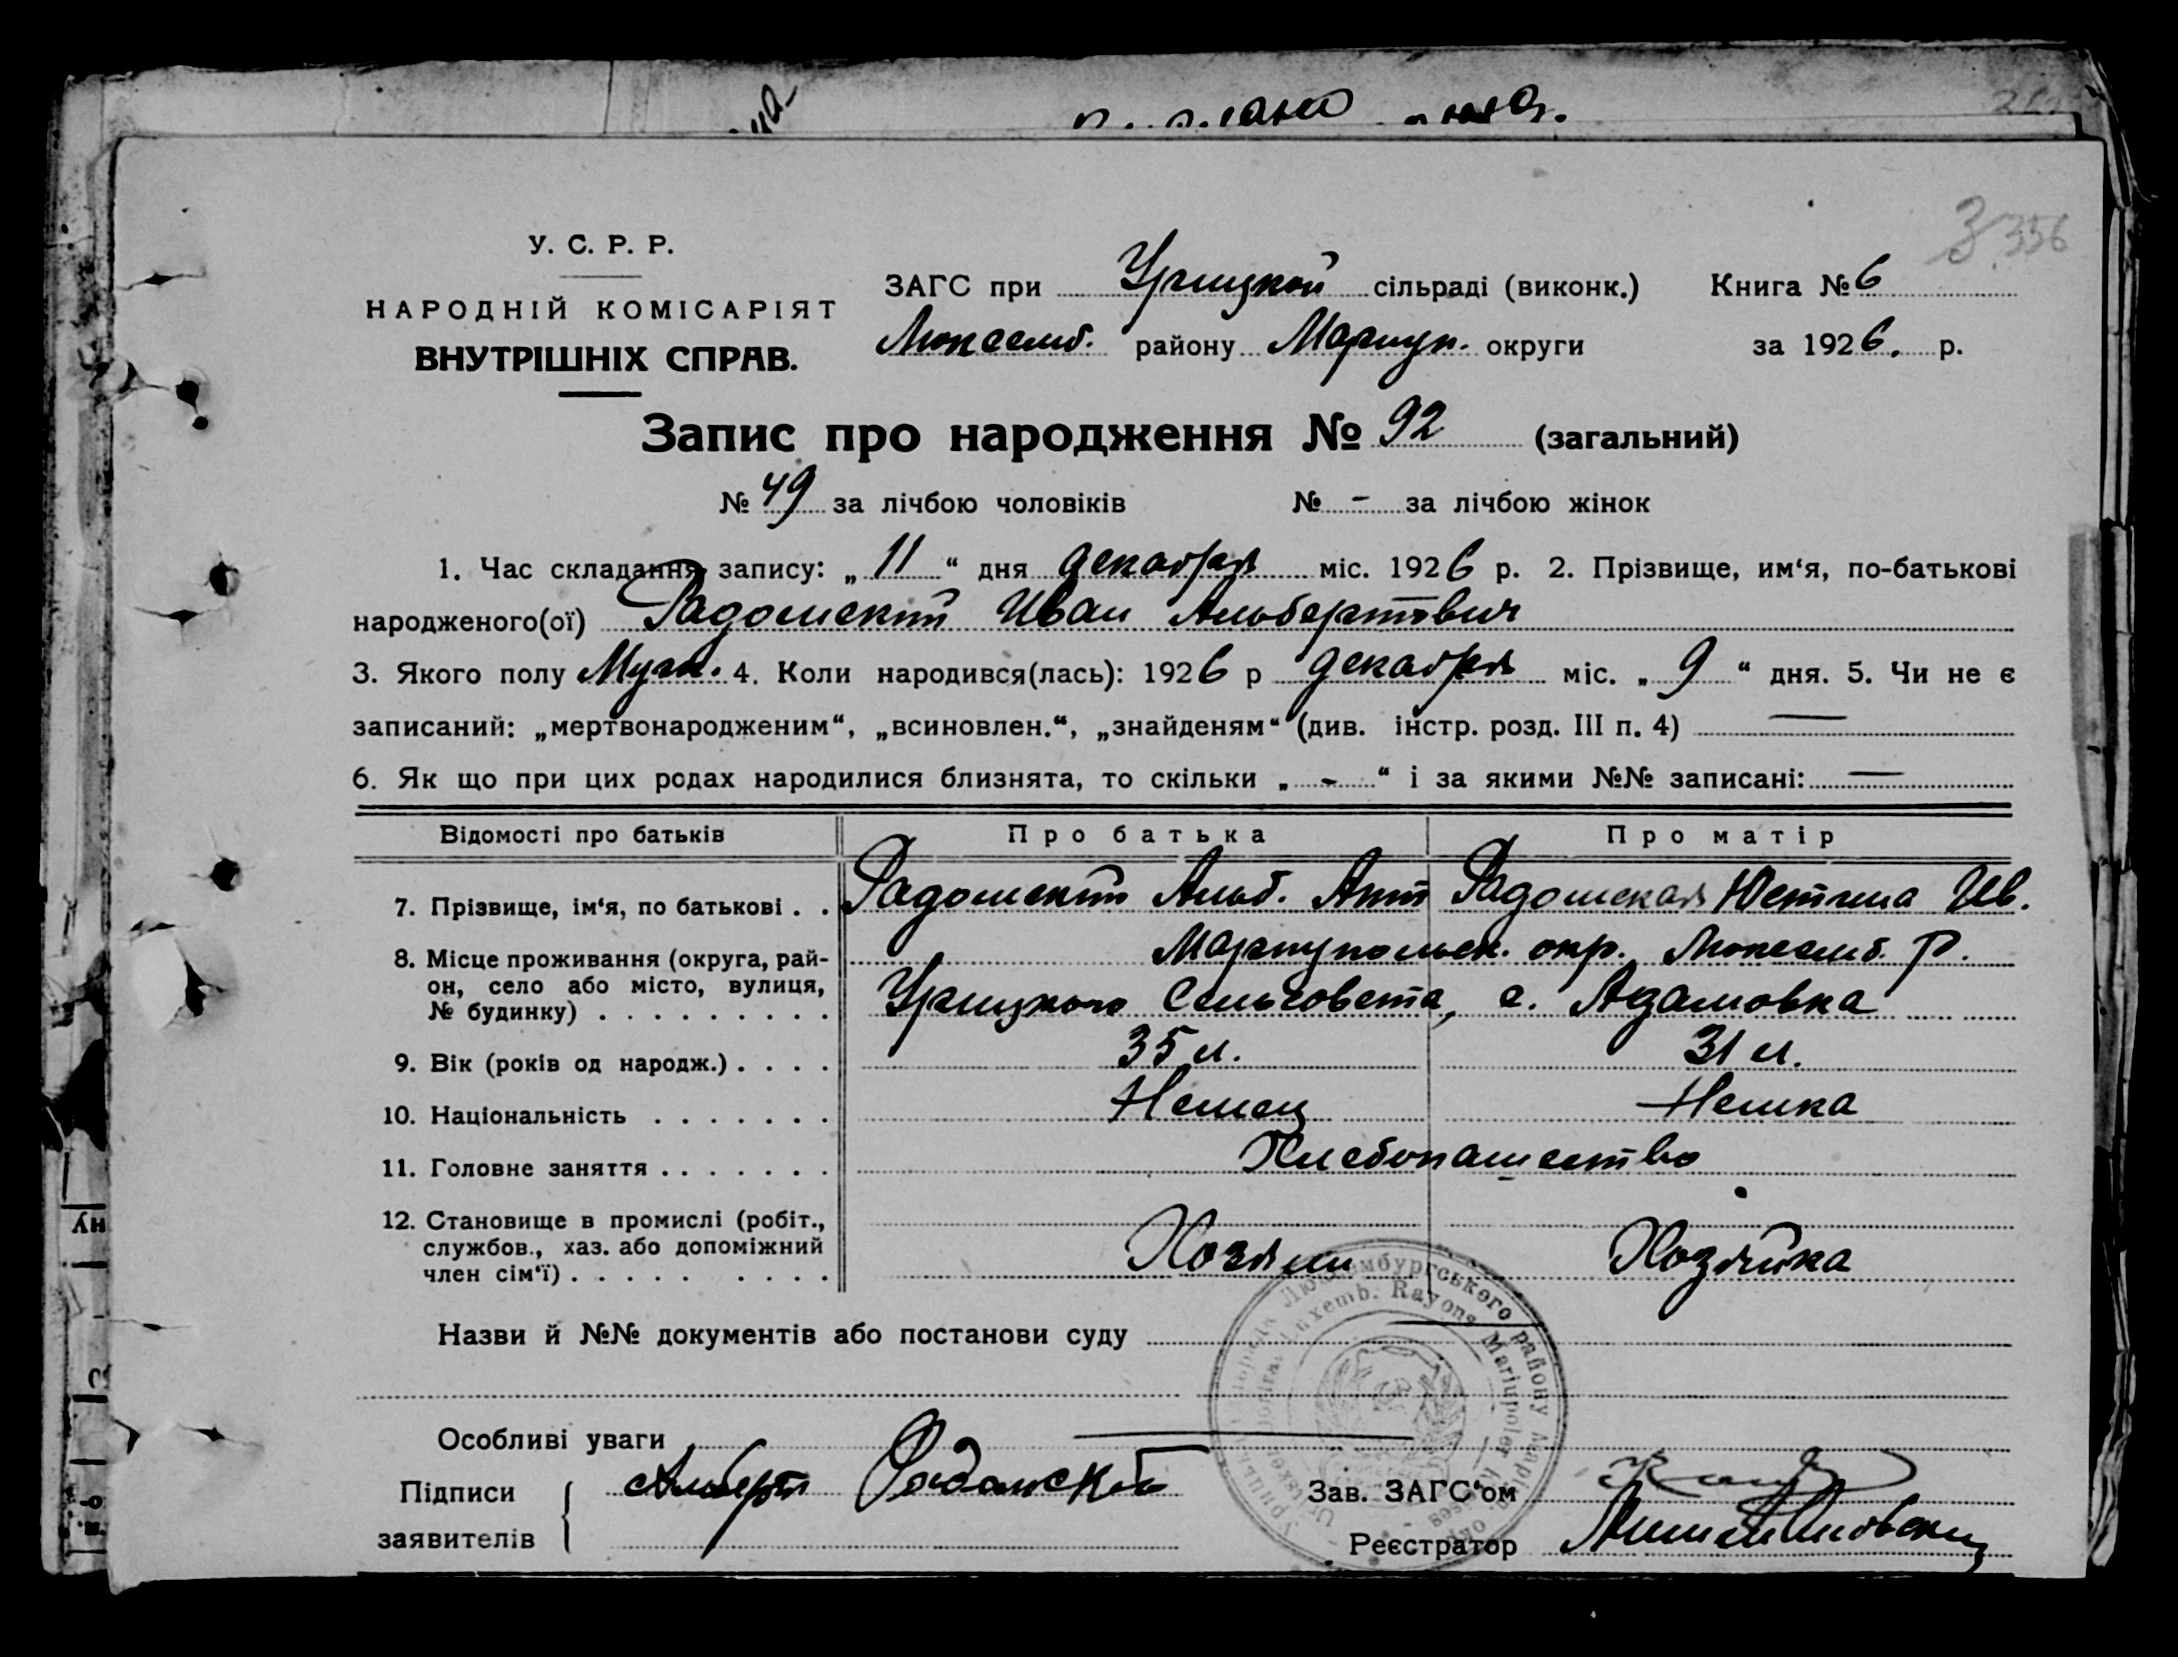 У. С. Р. Р.
НАРОДНІЙ КОМІСАРІЯТ
ВНУТРІШНІХ СПРАВ.
3 356
ЗАГС при Урицкой сільраді (виконк.) Книга № 6
Люксемб. району Мариуп. округи за 1926. р.
Запис про народження № 92 (загальний)
№ 49 за лічбою чоловіків № - за лічбою жінок
1. Час складання запису: „ 11 “ дня декабря міс. 1926 р. 2. Прізвище, им‘я, по-батькові
народженого(ої) Радомский Иван Альбертович
3. Якого полу Муж. 4. Коли народився(лась): 1926 р декабря міс. „ 9 “ дня. 5. Чи не є
записаний: „мертвонародженим“, „всиновлен.“, „знайденям“ (див. інстр. розд. III п. 4) —
6. Як що при цих родах народилися близнята, то скільки „ - “ і за якими №№ записані: —
Відомості про батьків Про батька Про матір
7. Прізвище, ім‘я, по батькові . . Радомский Альб. Ант Радомская Юстина Ив.
8. Місце проживання (округа, рай-
он, село або місто, вулиця,
№ будинку) . . . . . . . . .
Мариупольск. окр. Люксемб. Р.
Урицкого Сельсовета, с. Адамовка
9. Вік (років од народж.) . . . . 35 л. 31 л.
10. Національність . . . . . . . Немец Немка
11. Головне заняття . . . . . . . Хлебопашество
12. Становище в промислі (робіт.,
службов., хаз. або допоміжний
член сім‘ї) . . . . . . . . .
Хозяин Хозяйка
Назви й №№ документів або постанови суду
Особливі уваги
Підписи
заявителів
Альберт Радомский
Зав. ЗАГС‘ом
Реєстратор
Люксембургського району
Luxemb. Rayons Mariupoler